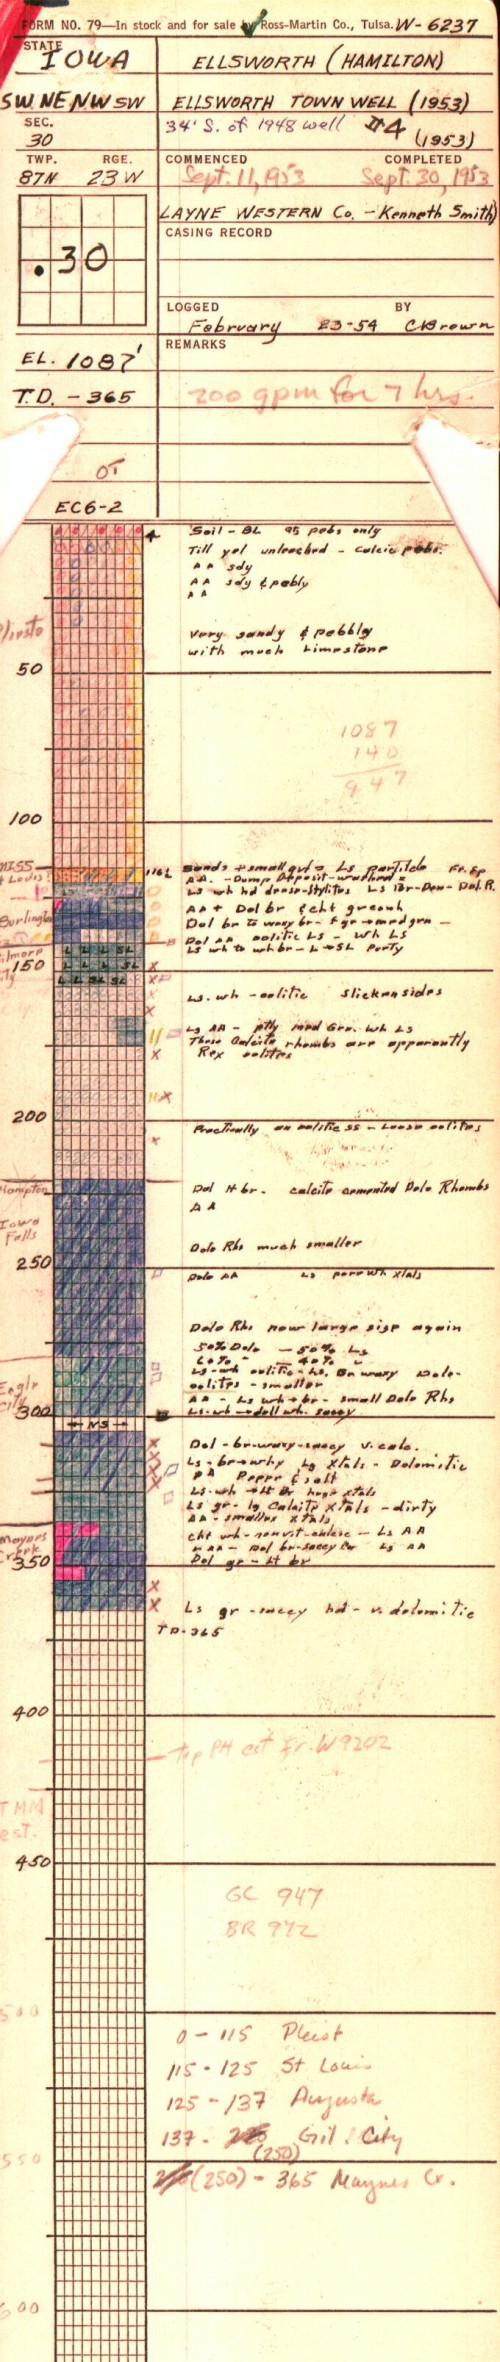 FORM NO. 79—In stock and for sale by Ross-Martin Co., Tulsa. W-6237
STATE
IOWA
ELLSWORTH (HAMILTON)
SW NE NW SW
ELLSWORTH TOWN WELL (1953)
SEC.
30
34' S. of 1948 well #4 (1953)
TWP. RGE.
87N 23W
COMMENCED COMPLETED
Sept. 11, 1953 Sept. 30, 1953
LAYNE WESTERN Co. - Kenneth Smith)
CASING RECORD
.30
LOGGED BY
February 23-54 CBrown
REMARKS
EL. 1087'
T.D. - 365
200 gpm for 7 hrs.
EC6-2
4
Soil - BL 95 pebs only
Till yel unleached - calcic pebs.
AA sdy
AA sdy & pebly
AA
Pleisto
Very sandy & pebbly
with much Limestone
50
1087
140
947
100
MISS
St Louis
Sands + small gvl = Ls particle
AA. - Dump Deposit - washed =
Ls wh hd dense - Stylites Ls lBr-Den- Dol R.
AA + Dol br & cht greenh
Burling
Dol br to waxy br - f gr → med grn -
Dol AA oolitic Ls - Wh Ls
Ls wh to wh br - L → SL Purty
Gilmore City
L L L SL
150
L L L SL
L L SL SL
Ls. wh - oolitic slickensides
Ls AA - ptly med Grn. wh Ls
These Calcite rhombs are apparently
Rex oolites
200
Practically an oolitic ss - Loose oolites
Hampton
Dol lt br - calcite cemented Dolo Rhombs
AA
Iowa Falls
Dolo Rhs much smaller
250
Dolo AA Ls pure wh xtals
Dolo Rhs now large size again
50% Dolo - 50% Ls
60% " - 40% "
Ls - wh oolitic - Ls, Br waxy Dolo-
oolites - smaller
Eagle City
AA - Ls wh → br - small Dolo Rhs
Ls - wh → dull wh. saccy
300
← NS →
Dol - br - waxy - saccy v. calc.
Ls - br → whly Lg Xtals - Dolomitic
AA Pepper & salt
Ls - wh → lt Br huge xtals
Ls gr - lg Calcite Xtals - dirty
AA - smaller xtals
Maynes Creek
cht wh - nonvit - calcic - Ls AA
" AA - Dol br - saccy Ls AA
350
Dol gr - lt br
Ls gr - saccy hd - v. dolomitic
TD-365
400
top PH est fr. W9202
T MM
est.
450
GC 947
BR 972
500
0 - 115 Pleist
115 - 125 St Louis
125 - 137 Augusta
137 - (250) Gil. City
550
(250) - 365 Maynes Cr.
600